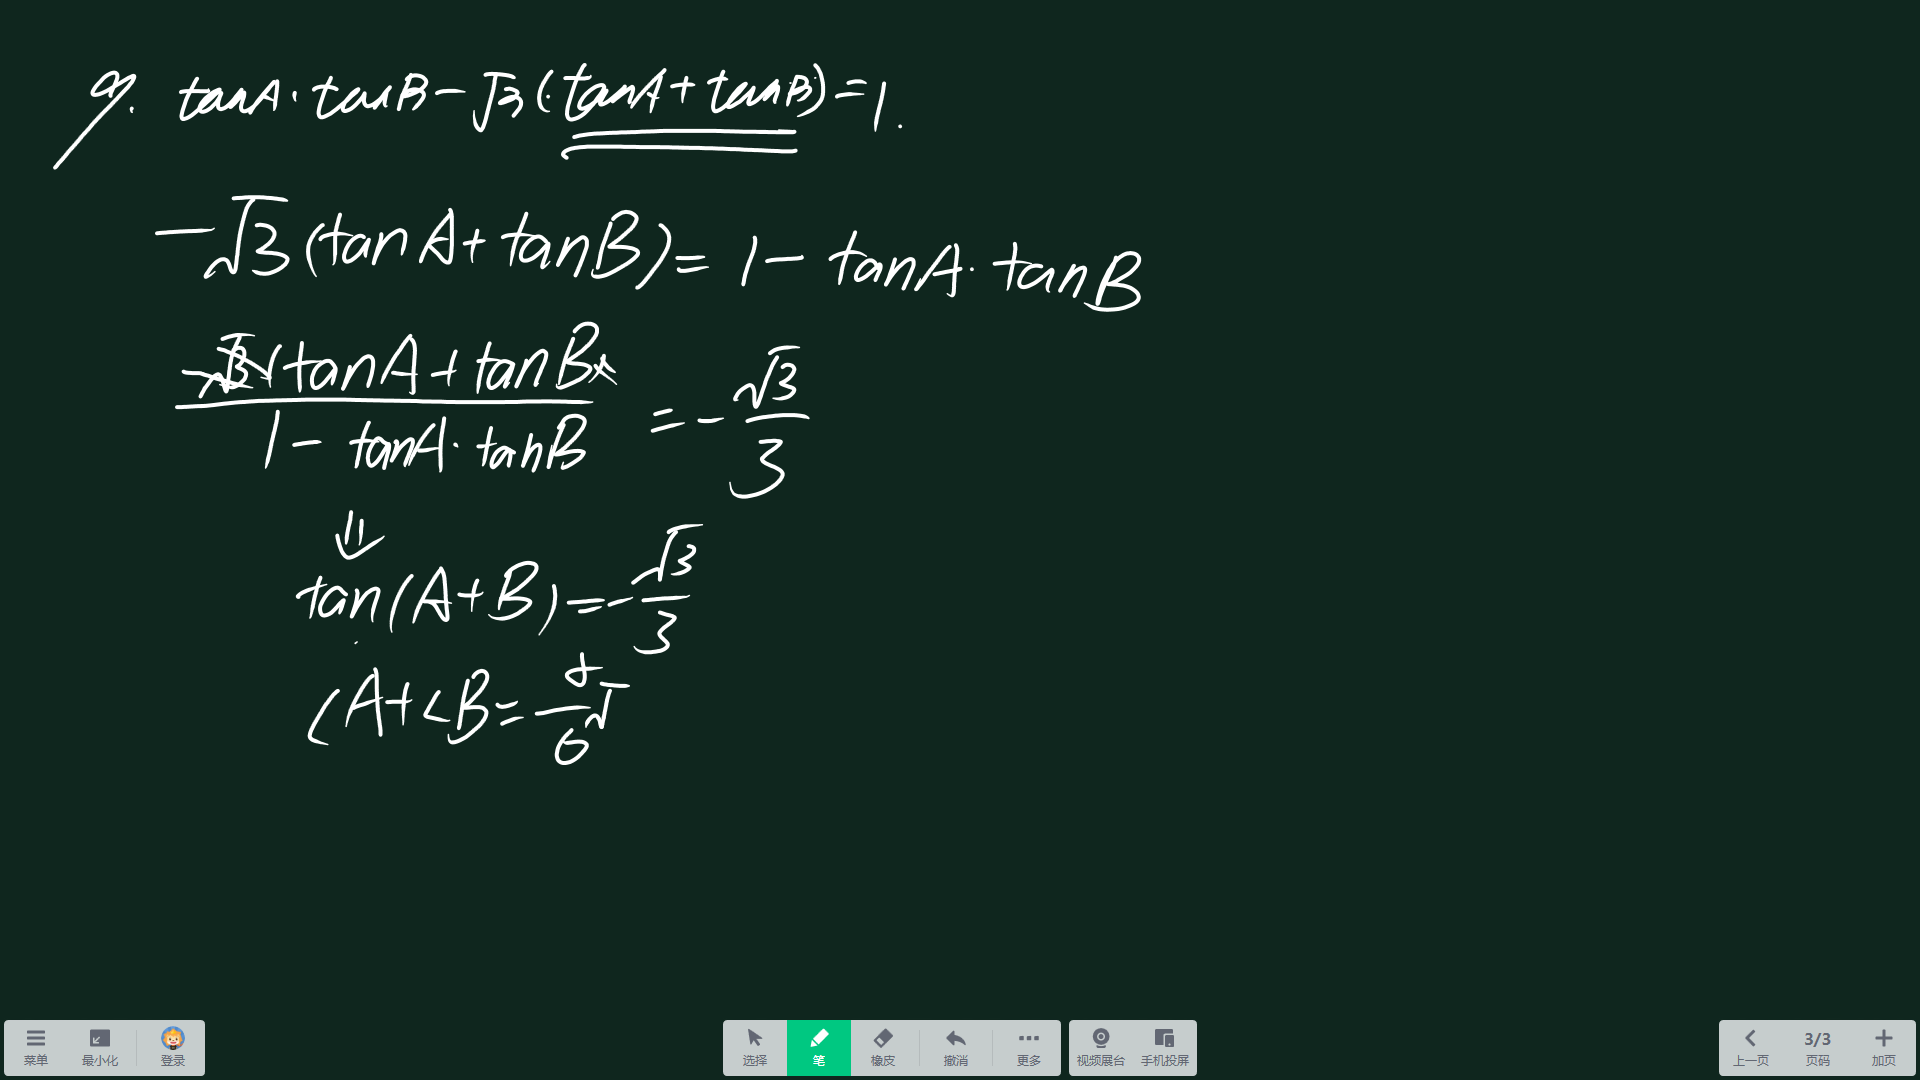 9. tanA·tanB-√3(tanA+tanB)=1.
-√3(tanA+tanB)=1-tanA·tanB
tanA+tanB/1-tanA·tanB=-√3/3
⇓
tan(A+B)=-√3/3
∠A+∠B=5/6π
菜单 最小化 登录 选择 笔 橡皮 撤消 更多 视频展台 手机投屏 上一页 3/3 页码 加页